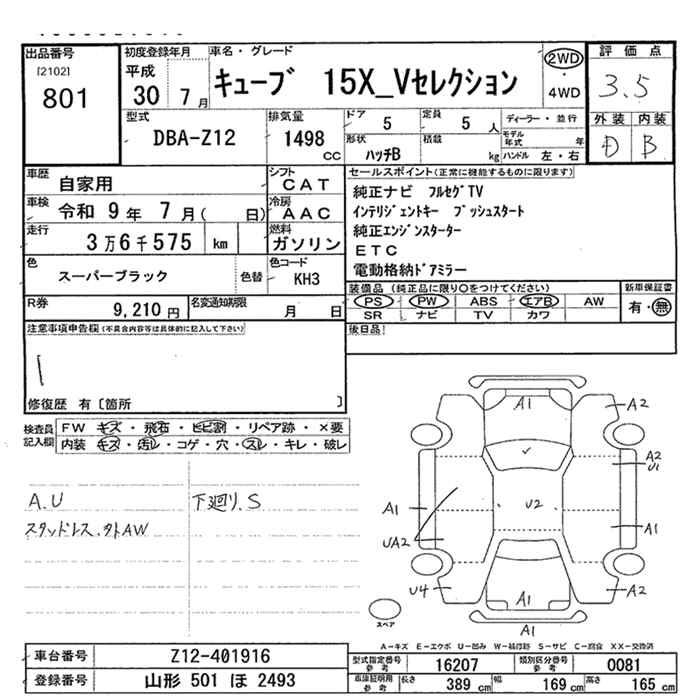 出品番号
[2102]
801
初度登録年月
平成
30 7月
車名・グレード
キューブ 15X_Vセレクション
2WD
・
4WD
評価点
3.5
外装 内装
D B
型式
DBA-Z12
排気量
1498
CC
ドア
5
定員
5 人
形状
ハッチB
積載
kg
ディーラー・並行
モデル
年式 年
ハンドル 左・右
車歴
自家用
シフト
CAT
車検
令和 9年 7月( 日)
冷房
AAC
走行
3万6千575 km
燃料
ガソリン
色
スーパーブラック
色替
色コード
KH3
R券
9,210円
名変通知期限
月 日
セールスポイント(正常に機能するものに限ります)
純正ナビ フルセグTV
インテリジェントキー プッシュスタート
純正エンジンスターター
ETC
電動格納ドアミラー
装備品 (純正品に限り○をつけてください)
PS PW ABS エアB AW
SR ナビ TV カワ
新車保証書
有・無
注意事項申告欄(不具合内容等は具体的に記入して下さい)
修復歴 有〔箇所 〕
後日品!
検査員
記入欄
FW キズ・飛石・ヒビ割・リペア跡・×要
内装 キズ・汚レ・コゲ・穴・スレ・キレ・破レ
A.U
スタッドレス.外AW
下廻り.S
A1
A2
A2
U1
U2
A1
A1
UA2
U4
A1
A2
A1
スペア
A−キズ E−エクボ U−凹み W−補修跡 S−サビ C−腐食 XX−交換済
車台番号
Z12-401916
登録番号
山形 501 ほ 2493
型式指定番号
参考
16207
類別区分番号
参考
0081
車庫証明用
参考
長さ
389 cm
幅
169 cm
高さ
165 cm